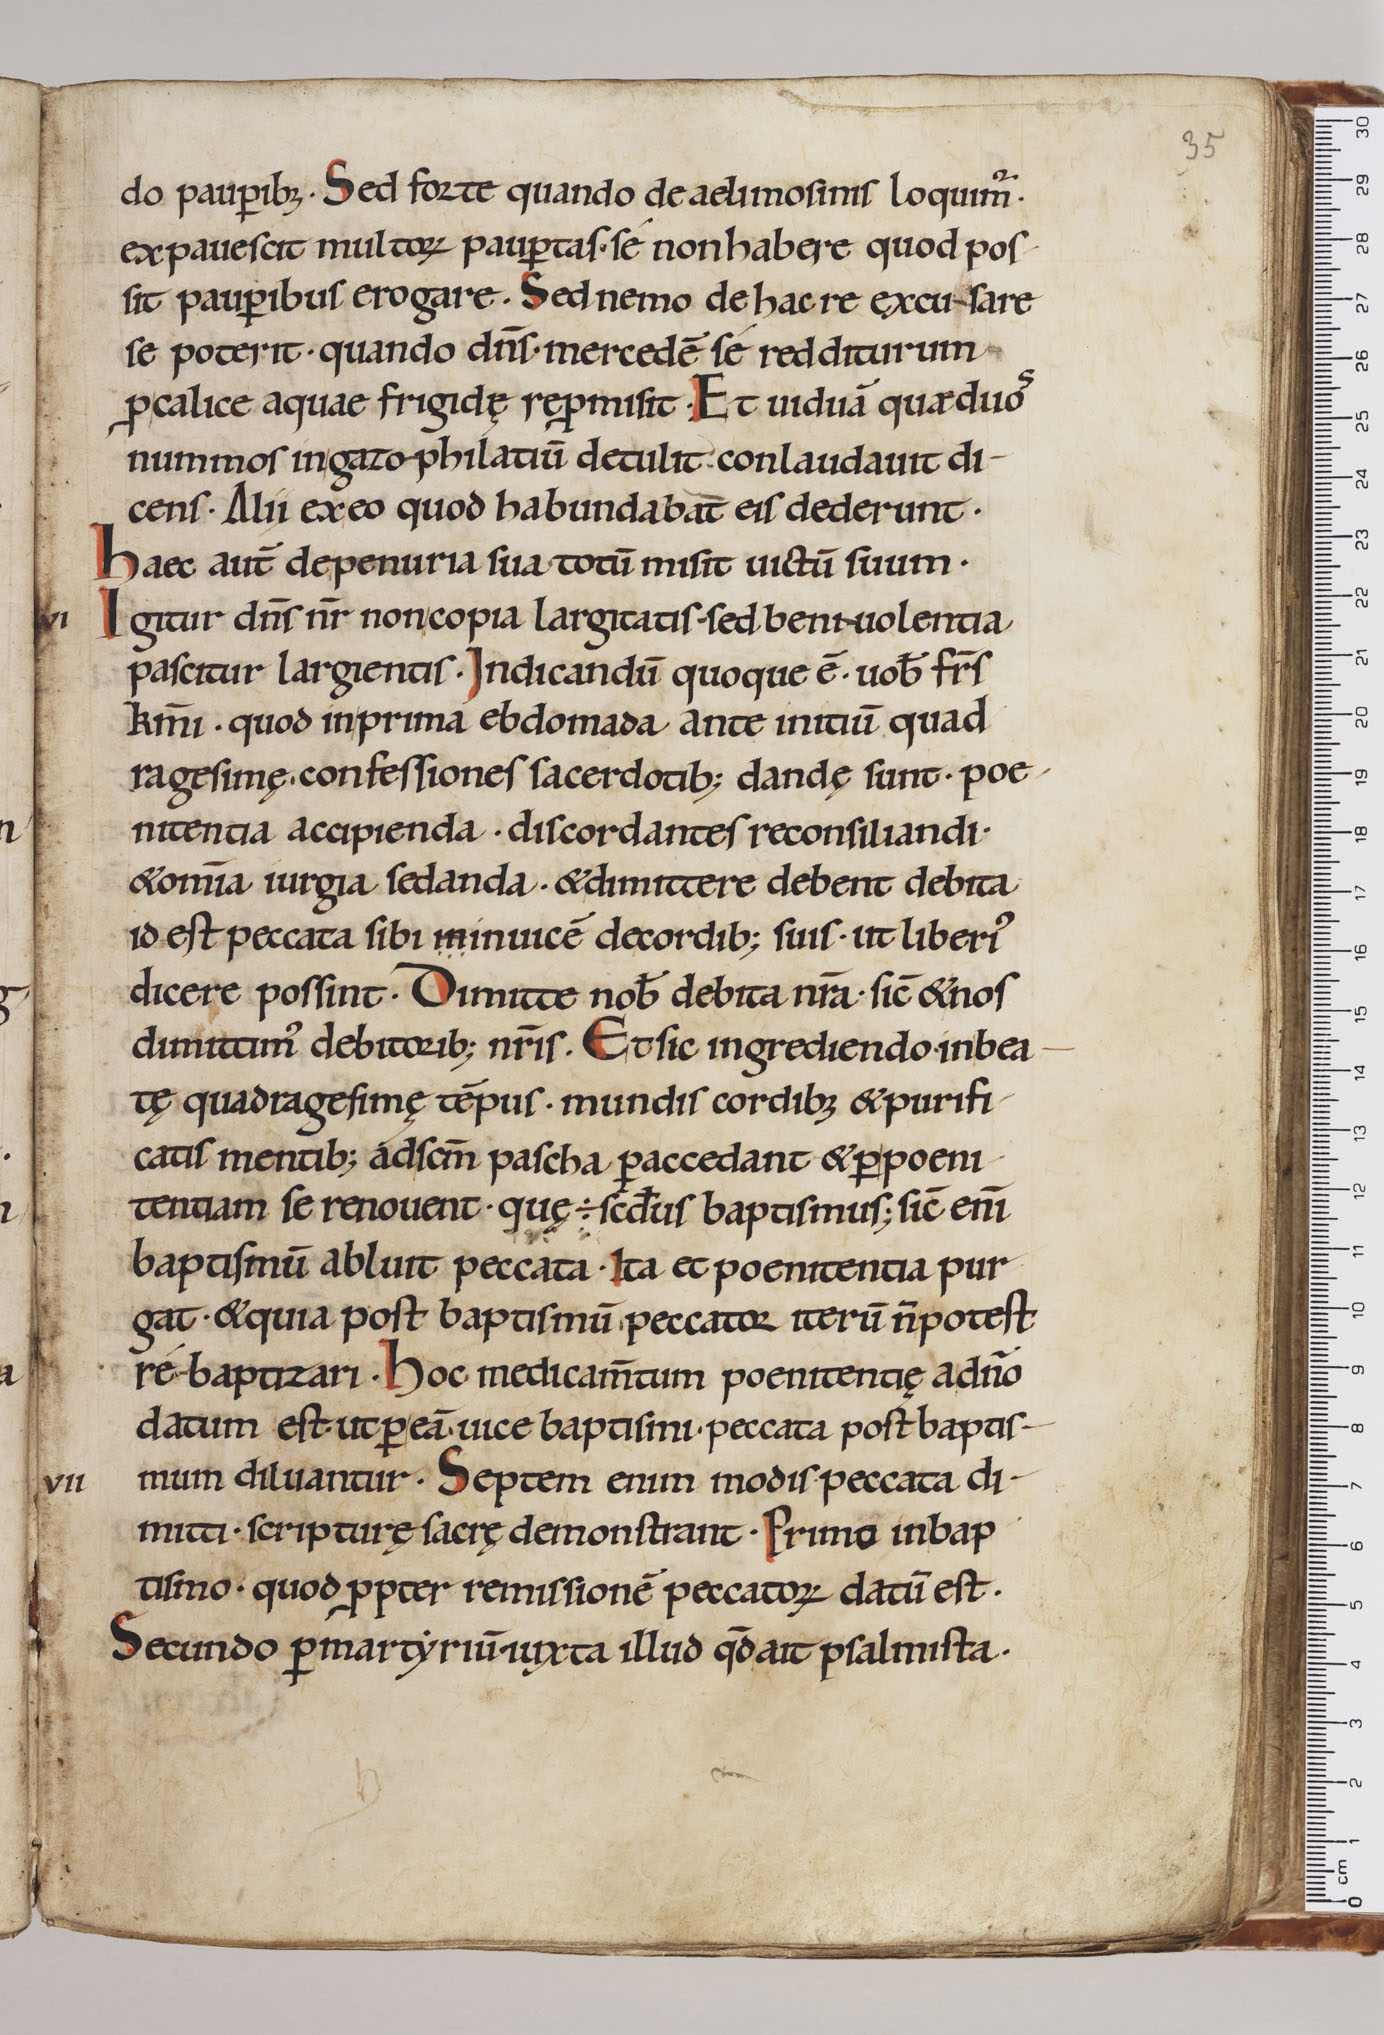 35
do paup̄ibꝫ · Sed forte quando de aelimosinis loquim᷑ ·
expauescit multoꝝ paup̄tas · sé non habere quod pos-
sit paup̄ibus erogare · Sed nemo de hac re excu-sare
se poterit · quando dn̄s · mercedē sé redditurum
ꝓ calice aquae frigidę reꝓmisit · Et uiduā quae duos
nummos in gazo-philatiū detulit · conlaudauit di-
cens · Alii ex eo quod habundabat̄ eis dederunt ·
haec aut̄ de penuria sua totū misit uictū suum ·
vi Igitur dn̄s nr̄ non copia largitatis · sed beni-uolentia
pascitur largientis · Indicandū quoque ē · uob̄ fr̄s
km̄i · quod in prima ebdomada ante initiū quad
ragesimę · confessiones sacerdotib; dandę sunt · poe-
nitentia accipienda · discordantes reconsiliandi ·
& om̄ia iurgia sedanda · & dimittere debent debita
id est peccata sibi minuicē de cordib; suis · ut liberiꝰ
dicere possint · Dimitte nob̄ debita nr̄a · sic̄ & nos
dimittimꝰ debitorib; nr̄is · Et sic ingrediendo in bea-
tę quadragesimę tēpus · mundis cordibꝫ & purifi-
catis mentib; ad scm̄ pascha p̄accedant & ꝑ poeni
tentiam se renouent · quę ÷ scd̄us baptismus; sic̄ eni̅
baptismū abluit peccata · Ita et poenitentia pur-
gat · & quia post baptismū peccator iterū n̄ potest
ré-baptizari · hoc medicam̄tum poenitentię a dn̄o
datum est · ut ꝑ eā · uice baptismi · peccata post baptis-
vii mum diluantur · Septem enim modis peccata di-
mitti · scripturę sacrę demonstrant · Primo in bap
tismo · quod ꝓpter remissionē peccatoꝝ datū est ·
Secundo ꝑ martyriū · iuxta illud qd̄ ait psalmista ·